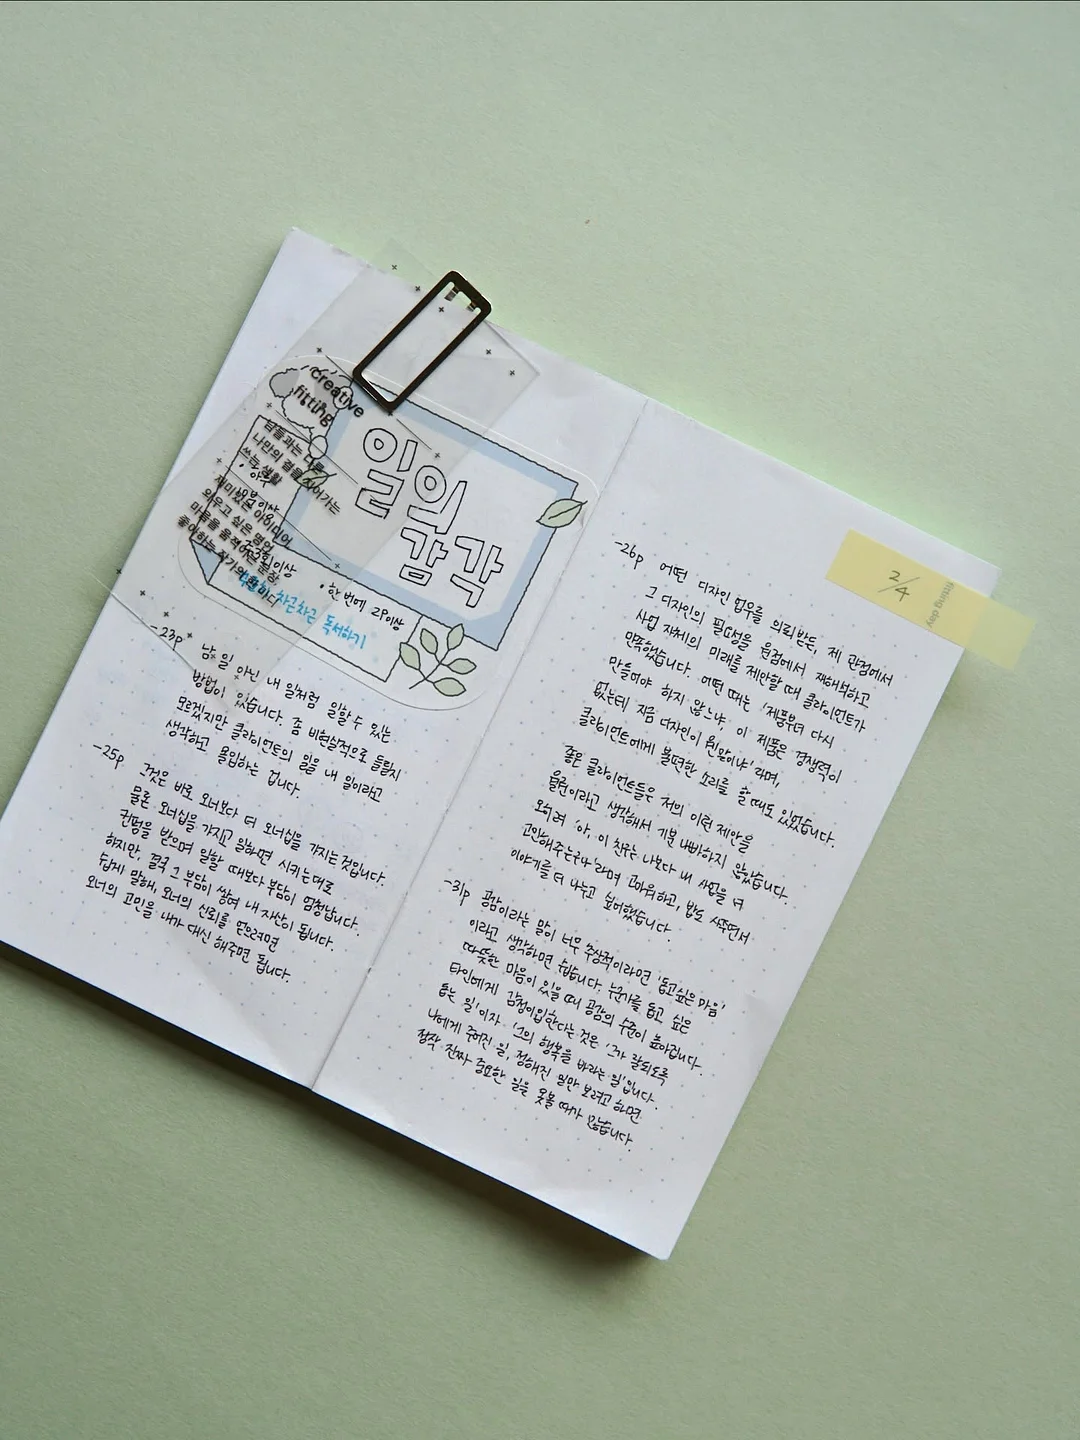 creative
fitting
남들과는 다른
나만의 결을
쓰는 생활
재미있는 아이디어
외우고 싶은 명언
마음을 움직이는 문장
좋아하는 작가의
일의
감각
• 한 번에 2P이상
차근차근 독서하기
-23p
남 일 아닌 내 일처럼 일할 수 있는
방법이 있습니다. 좀 비현실적으로 들릴지
모르겠지만 클라이언트의 일을 내 일이라고
생각하고 몰입하는 겁니다.
-25p
그것은 바로 오너보다 더 오너십을 가지는 것입니다.
물론 오너십을 가지고 일하면 시키는대로
컨펌을 받으며 일할 때보다 부담이 엄청납니다.
하지만, 결국 그 부담이 쌓여 내 자산이 됩니다.
쉽게 말해, 오너의 신뢰를 얻으려면
오너의 고민을 내가 대신 해주면 됩니다.
2/4
fitting day
-26p
어떤 디자인 업무를 의뢰받든, 제 관점에서
그 디자인의 필요성을 원점에서 재해석하고
사업 자체의 미래를 제안할 때 클라이언트가
만족했습니다. 어떤 때는 '제품부터 다시
만들어야 하지 않느냐, 이 제품은 경쟁력이
없는데 지금 디자인이 웬말이냐'라며,
클라이언트에게 불편한 소리를 할 때도 있었습니다.
좋은 클라이언트들은 저의 이런 제안을
월권이라고 생각해서 기분 나빠하지 않았습니다.
오히려 '아, 이 친구는 나보다 내 사업을 더
고민해주는구나'라며 고마워하고, 밥도 사주면서
이야기를 더 나누고 싶어했습니다.
-31p
공감이라는 말이 너무 추상적이라면 '돕고싶은 마음'
이라고 생각하면 쉽습니다. 누군가를 돕고 싶은
따뜻한 마음이 있을 때 공감의 수준이 높아집니다.
타인에게 감정이입한다는 것은 '그가 잘되도록
돕는 일'이자 '그의 행복을 바라는 일'입니다.
나에게 주어진 일, 정해진 일만 보려고 하면
정작 진짜 중요한 일을 못볼 때가 많습니다.